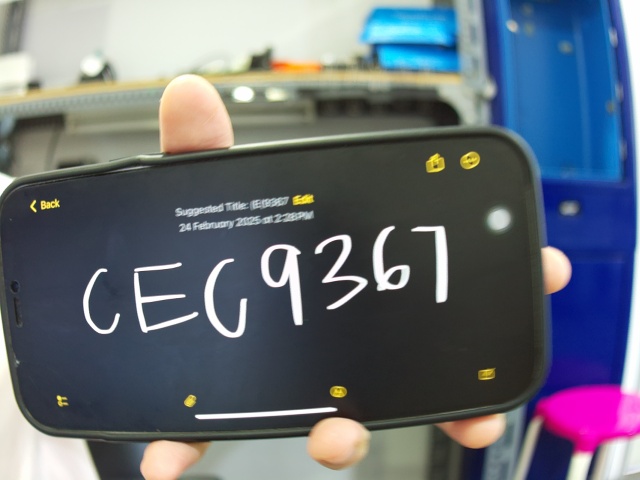 Back
Suggested Title: (E)9367 Edit
24 February 2025 at 2:28 PM
CEC9367